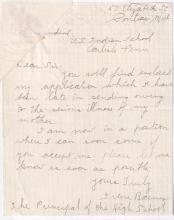 57 Elizabeth St
Pontiac Mich
U.S. Indian School
Carlisle Penn
Dear Sir,
you will find enclosed
my application which I have
been late in sending owing
to the serious illness of my
mother.
I am now in a position
where I can soon come if
you accept me, please let me
know as soon as possible.
Yours Truly
The Principal of the High School